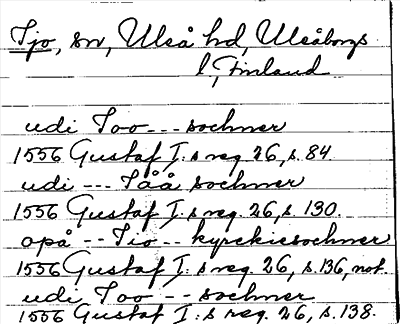 Ijo, sn, Uleå hd, Uleåborgs
l, Finland
udi Ioo --- sochner
1556 Gustaf I:s reg. 26, s. 84.
udi --- Iåå sochner
1556 Gustaf I:s reg. 26, s. 130.
opå -- Iio -- kyrckiesochner
1556 Gustaf I:s reg. 26, s. 136, not.
udi Ioo -- sochner
1556 Gustaf I:s reg. 26, s. 138.